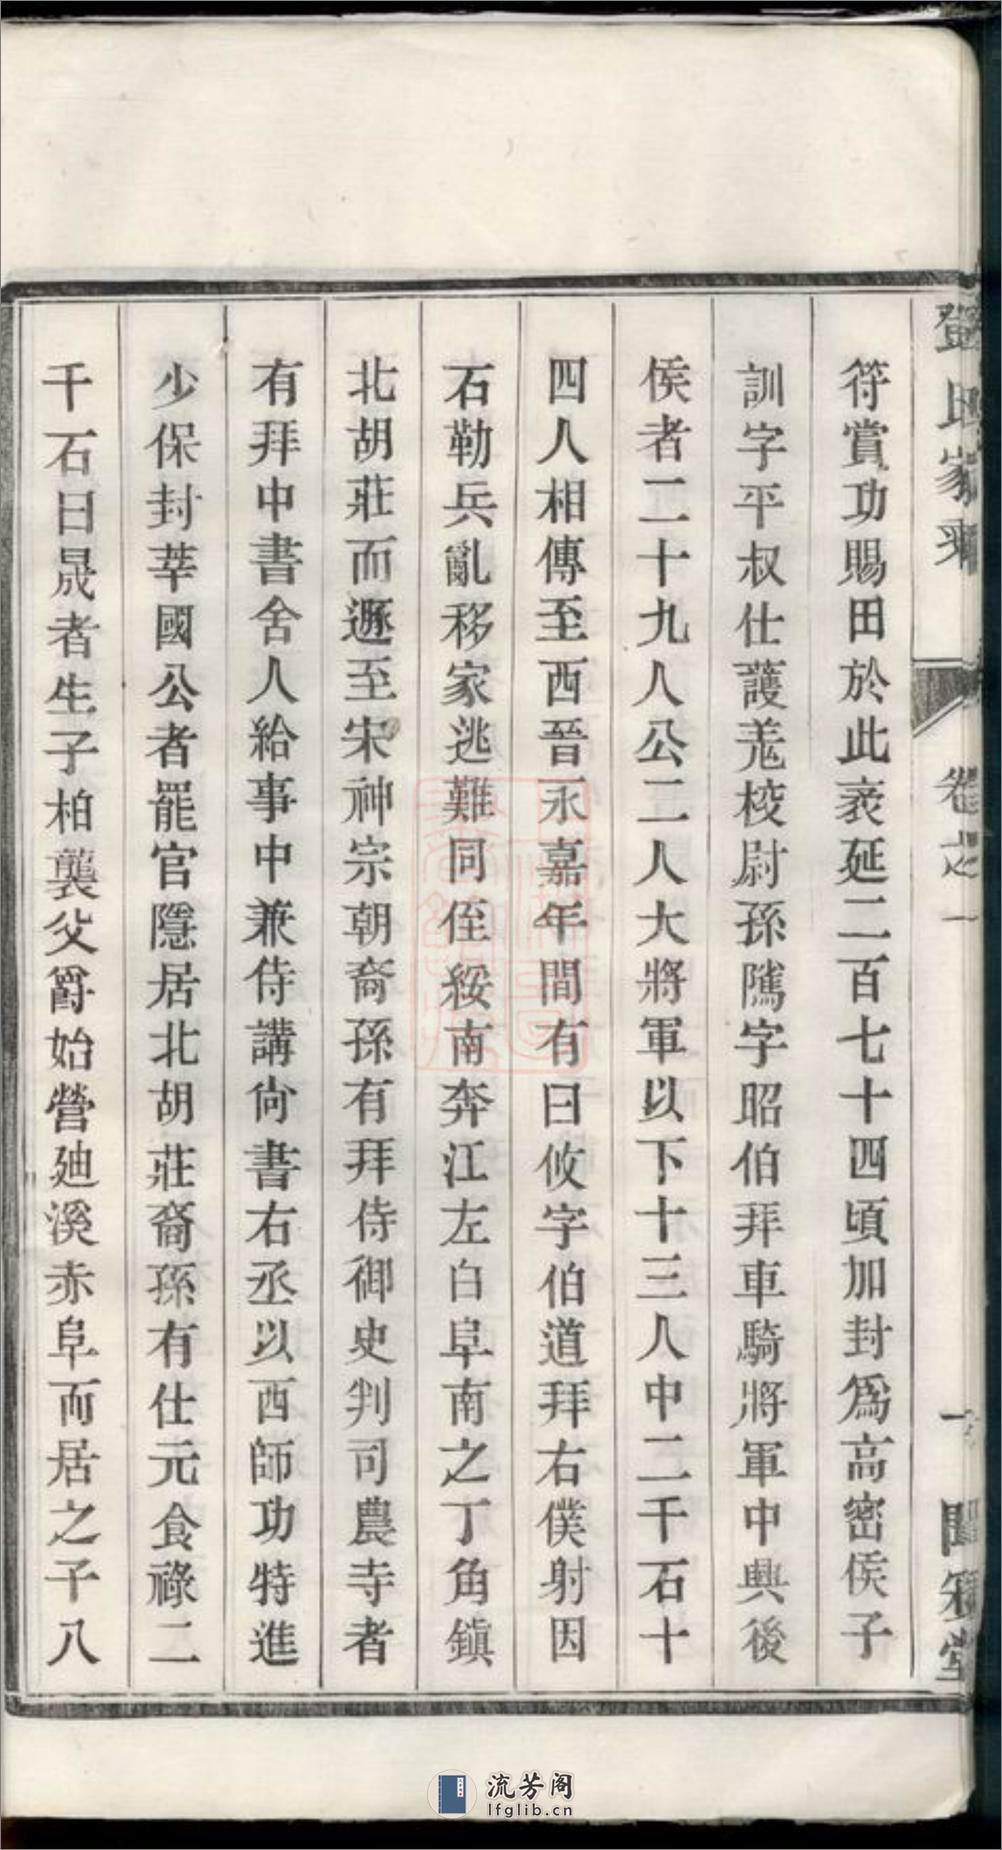 符賞功賜田於此袤延二百七十四頃加封爲高密侯子
訓字平叔仕護羗校尉孫隲字昭伯拜車騎將軍中興後
侯者二十九人公二人大將軍以下十三人中二千石十
四人相傳至西晉永嘉年間有曰攸字伯道拜右僕射因
石勒兵亂移家逃難同侄綏南奔江左白阜南之丁角鎮
北胡莊而遯至宋神宗朝裔孫有拜侍御史判司農寺者
有拜中書舍人給事中兼侍講尙書右丞以西師功特進
少保封莘國公者罷官隱居北胡莊裔孫有仕元食祿二
千石曰晟者生子柏襲父爵始營廸溪赤阜而居之子八
卷之一
流芳阁
lfglib.cn